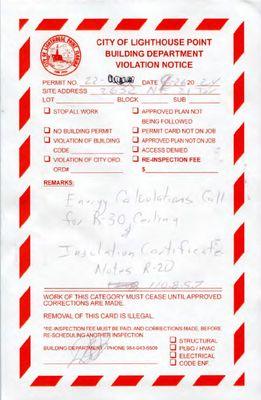 CITY OF LIGHTHOUSE POINT
BUILDING DEPARTMENT
VIOLATION NOTICE
PERMIT NO. 22- DATE 9-26 20 24
SITE ADDRESS 2632 NE
LOT BLOCK SUB
STOP ALL WORK
APPROVED PLAN NOT
BEING FOLLOWED
NO BUILDING PERMIT
PERMIT CARD NOT ON JOB
VIOLATION OF BUILDING
APPROVED PLAN NOT ON JOB
CODE
ACCESS DENIED
VIOLATION OF CITY ORD.
RE-INSPECTION FEE
ORD# $
REMARKS:
Energy Calculations Call
for R-30 Ceiling
&
Insulation Certificate
Notes R-20
110.8.5.7
WORK OF THIS CATEGORY MUST CEASE UNTIL APPROVED
CORRECTIONS ARE MADE.
REMOVAL OF THIS CARD IS ILLEGAL.
*RE-INSPECTION FEE MUST BE PAID, AND CORRECTIONS MADE, BEFORE
RE-SCHEDULING ANOTHER INSPECTION.
STRUCTURAL
BUILDING DEPARTMENT - PHONE 954-943-6509
PLBG / HVAC
ELECTRICAL
CODE ENF.